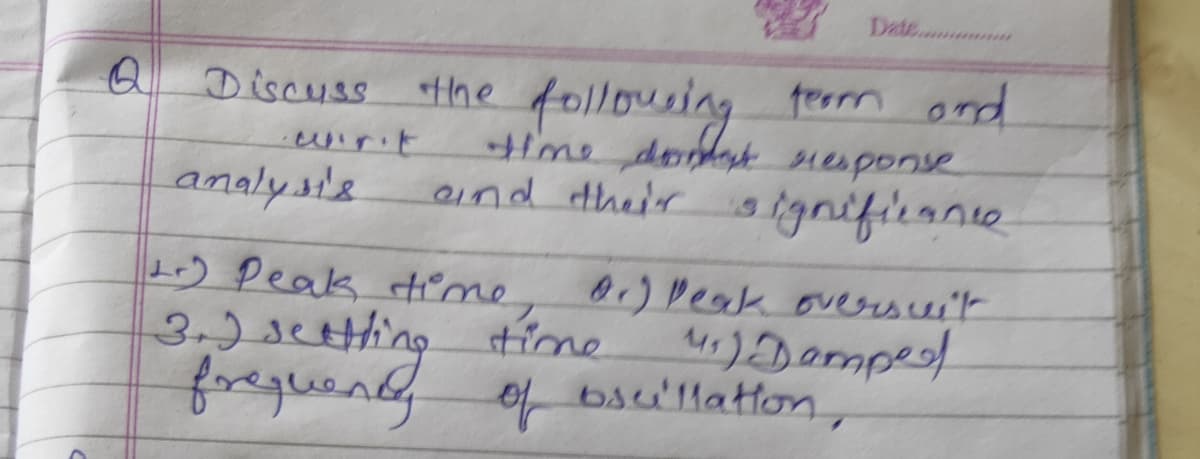 Date..............
Q Discuss the following term and
w.r.t time domain response
analysis and their significance
1.) Peak time, 2.) Peak
3.) settling time 4.) Damped
frequency of oscillation,